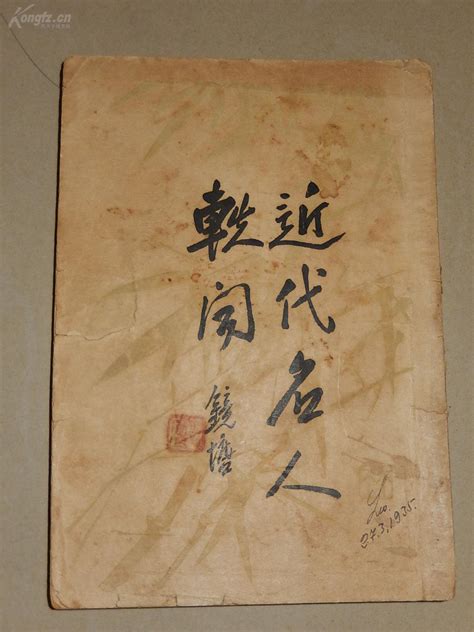 Kongfz.cn
近代名人
軼闻
鏡塘
27.3.1935.